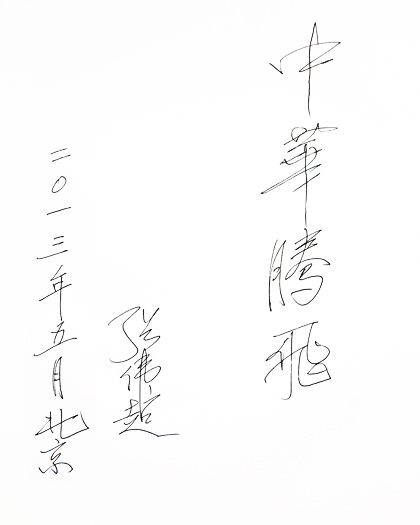 中華騰飛
张伟超
二〇一三年五月北京